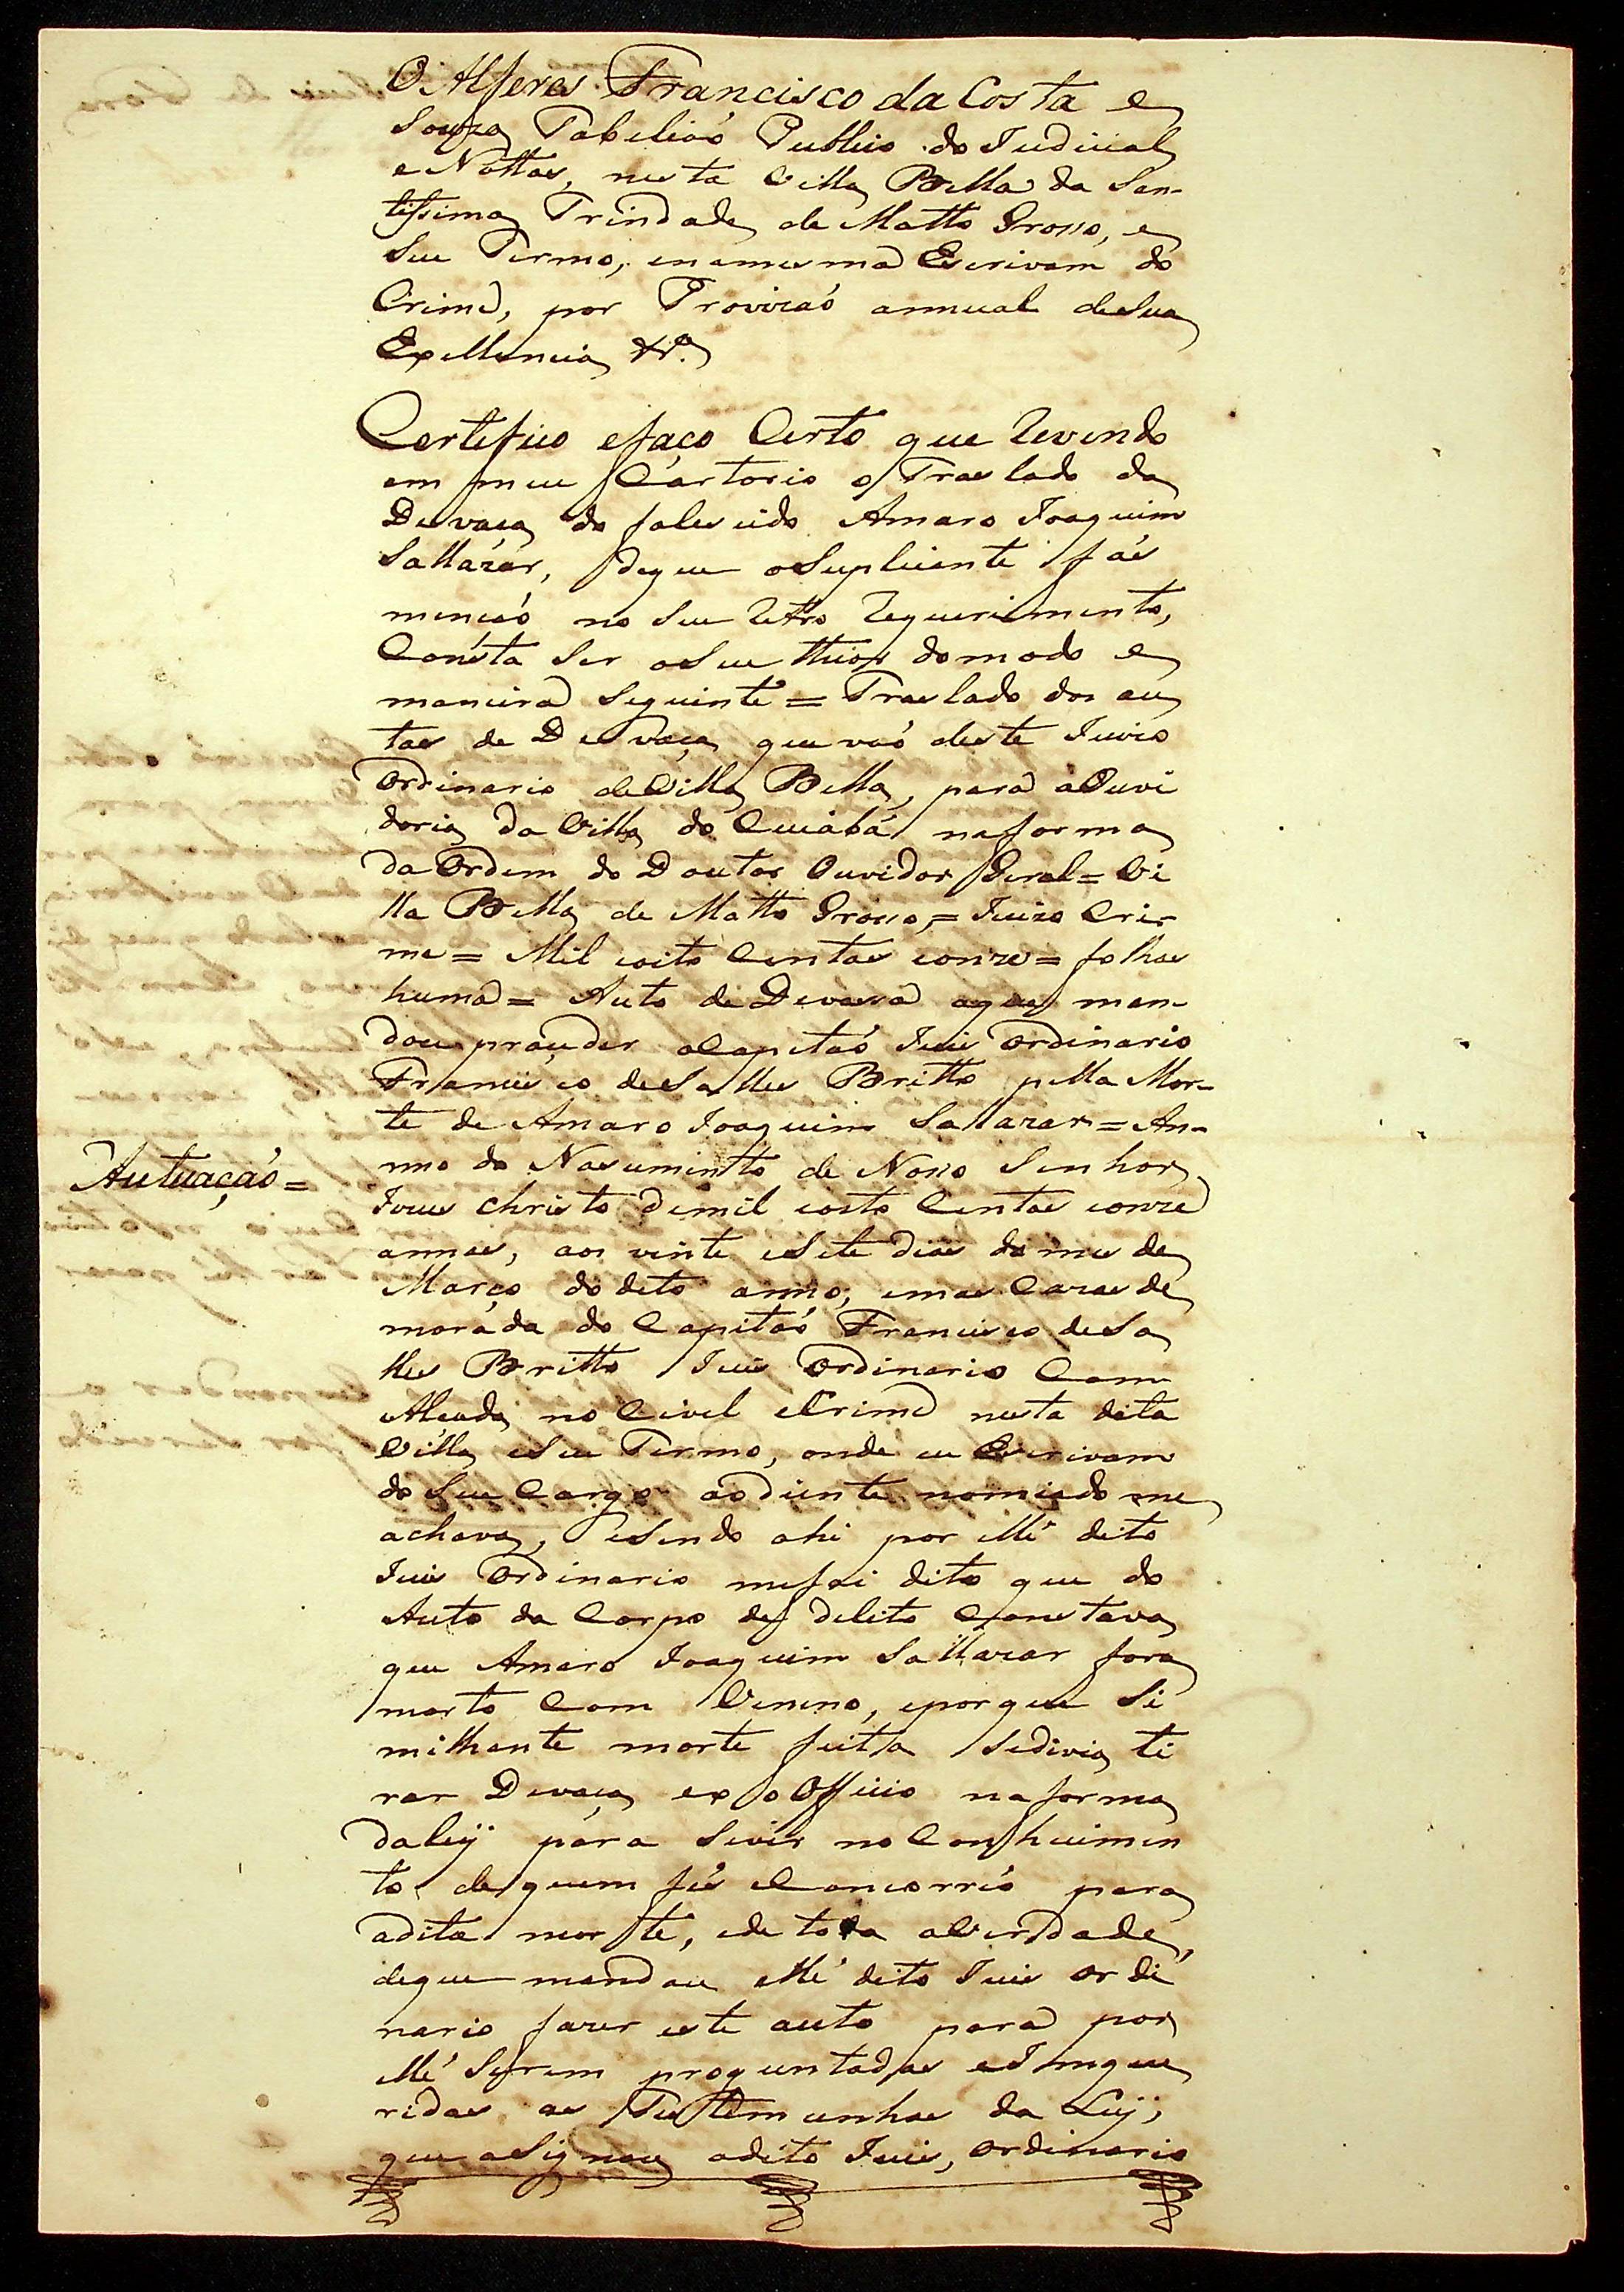 O Alferes Francisco da Costa e
Souza Tabeliaó Publico do Judicial
e Nottas, nesta Villa Bella da San-
tissima Trindade de Matto Grosso, e
Seu Termo, e na mesma Escrivam do
Crime, por Provizaó annual de Sua
Excellencia &ª.
Certefico efaço Certo que revendo
em meu Cartorio o Traslado da
Devaça do falescido Amaro Joaquim
Sallazar, deque oSuplicante fás
mencaó no Seu retro requerimento,
Consta Ser oSeu thior domodo e
maneira Seguinte = Traslado dos au
tos de Devaça que vaó deste Juizo
Ordinario deVilla Bella, para aOuvi
doria da Villa do Cuiabá naforma
da Ordem do Doutor Ouvidor Geral = Vi
lla Bella de Matto Grosso = Juizo Cri-
me = Mil eoito Centos eonze = folhas
huma = Auto de Devassa aque man-
dou prouder oCapitaó Juis Ordinario
Francisco deSalles Britto pella Mor-
te de Amaro Joaquim Sallazar = An-
Autuaçaó =
nno do Nascimento de Nosso Senhor
Jezus Christo demil eoito Centos eonze
annos, aos vinte eSete dias do mes de
Março do dito anno, emas Cazas de
morada do Capitaó Francisco deSa
lles Britto Juis Ordinario Com
Alcada no Civel eCrime nesta dita
Villa eSeu Termo, onde eu Escrivam
do Seu Cargo aodiente nomiado me
achava, eSendo ahi por elle dito
Juis Ordinario mefoi dito que do
Auto da Corpo de delito Constava
que Amaro Joaquim Sallazar fora
morto Com Veneno, eporque Si
milhante morte feita Sedivia ti
rar Devaça ex o Officio naforma
daleÿ para Sevir no Conhecimen
to de quem fés eConcorrió para
adita morte, ede toda aVerdade,
deque mandou elle dito Juis Ordi
nario fazer este auto para por
elle Serem proguntadas eInque
ridas as Testemunhas da Leÿ,
que aSignou odito Juis, Ordinario